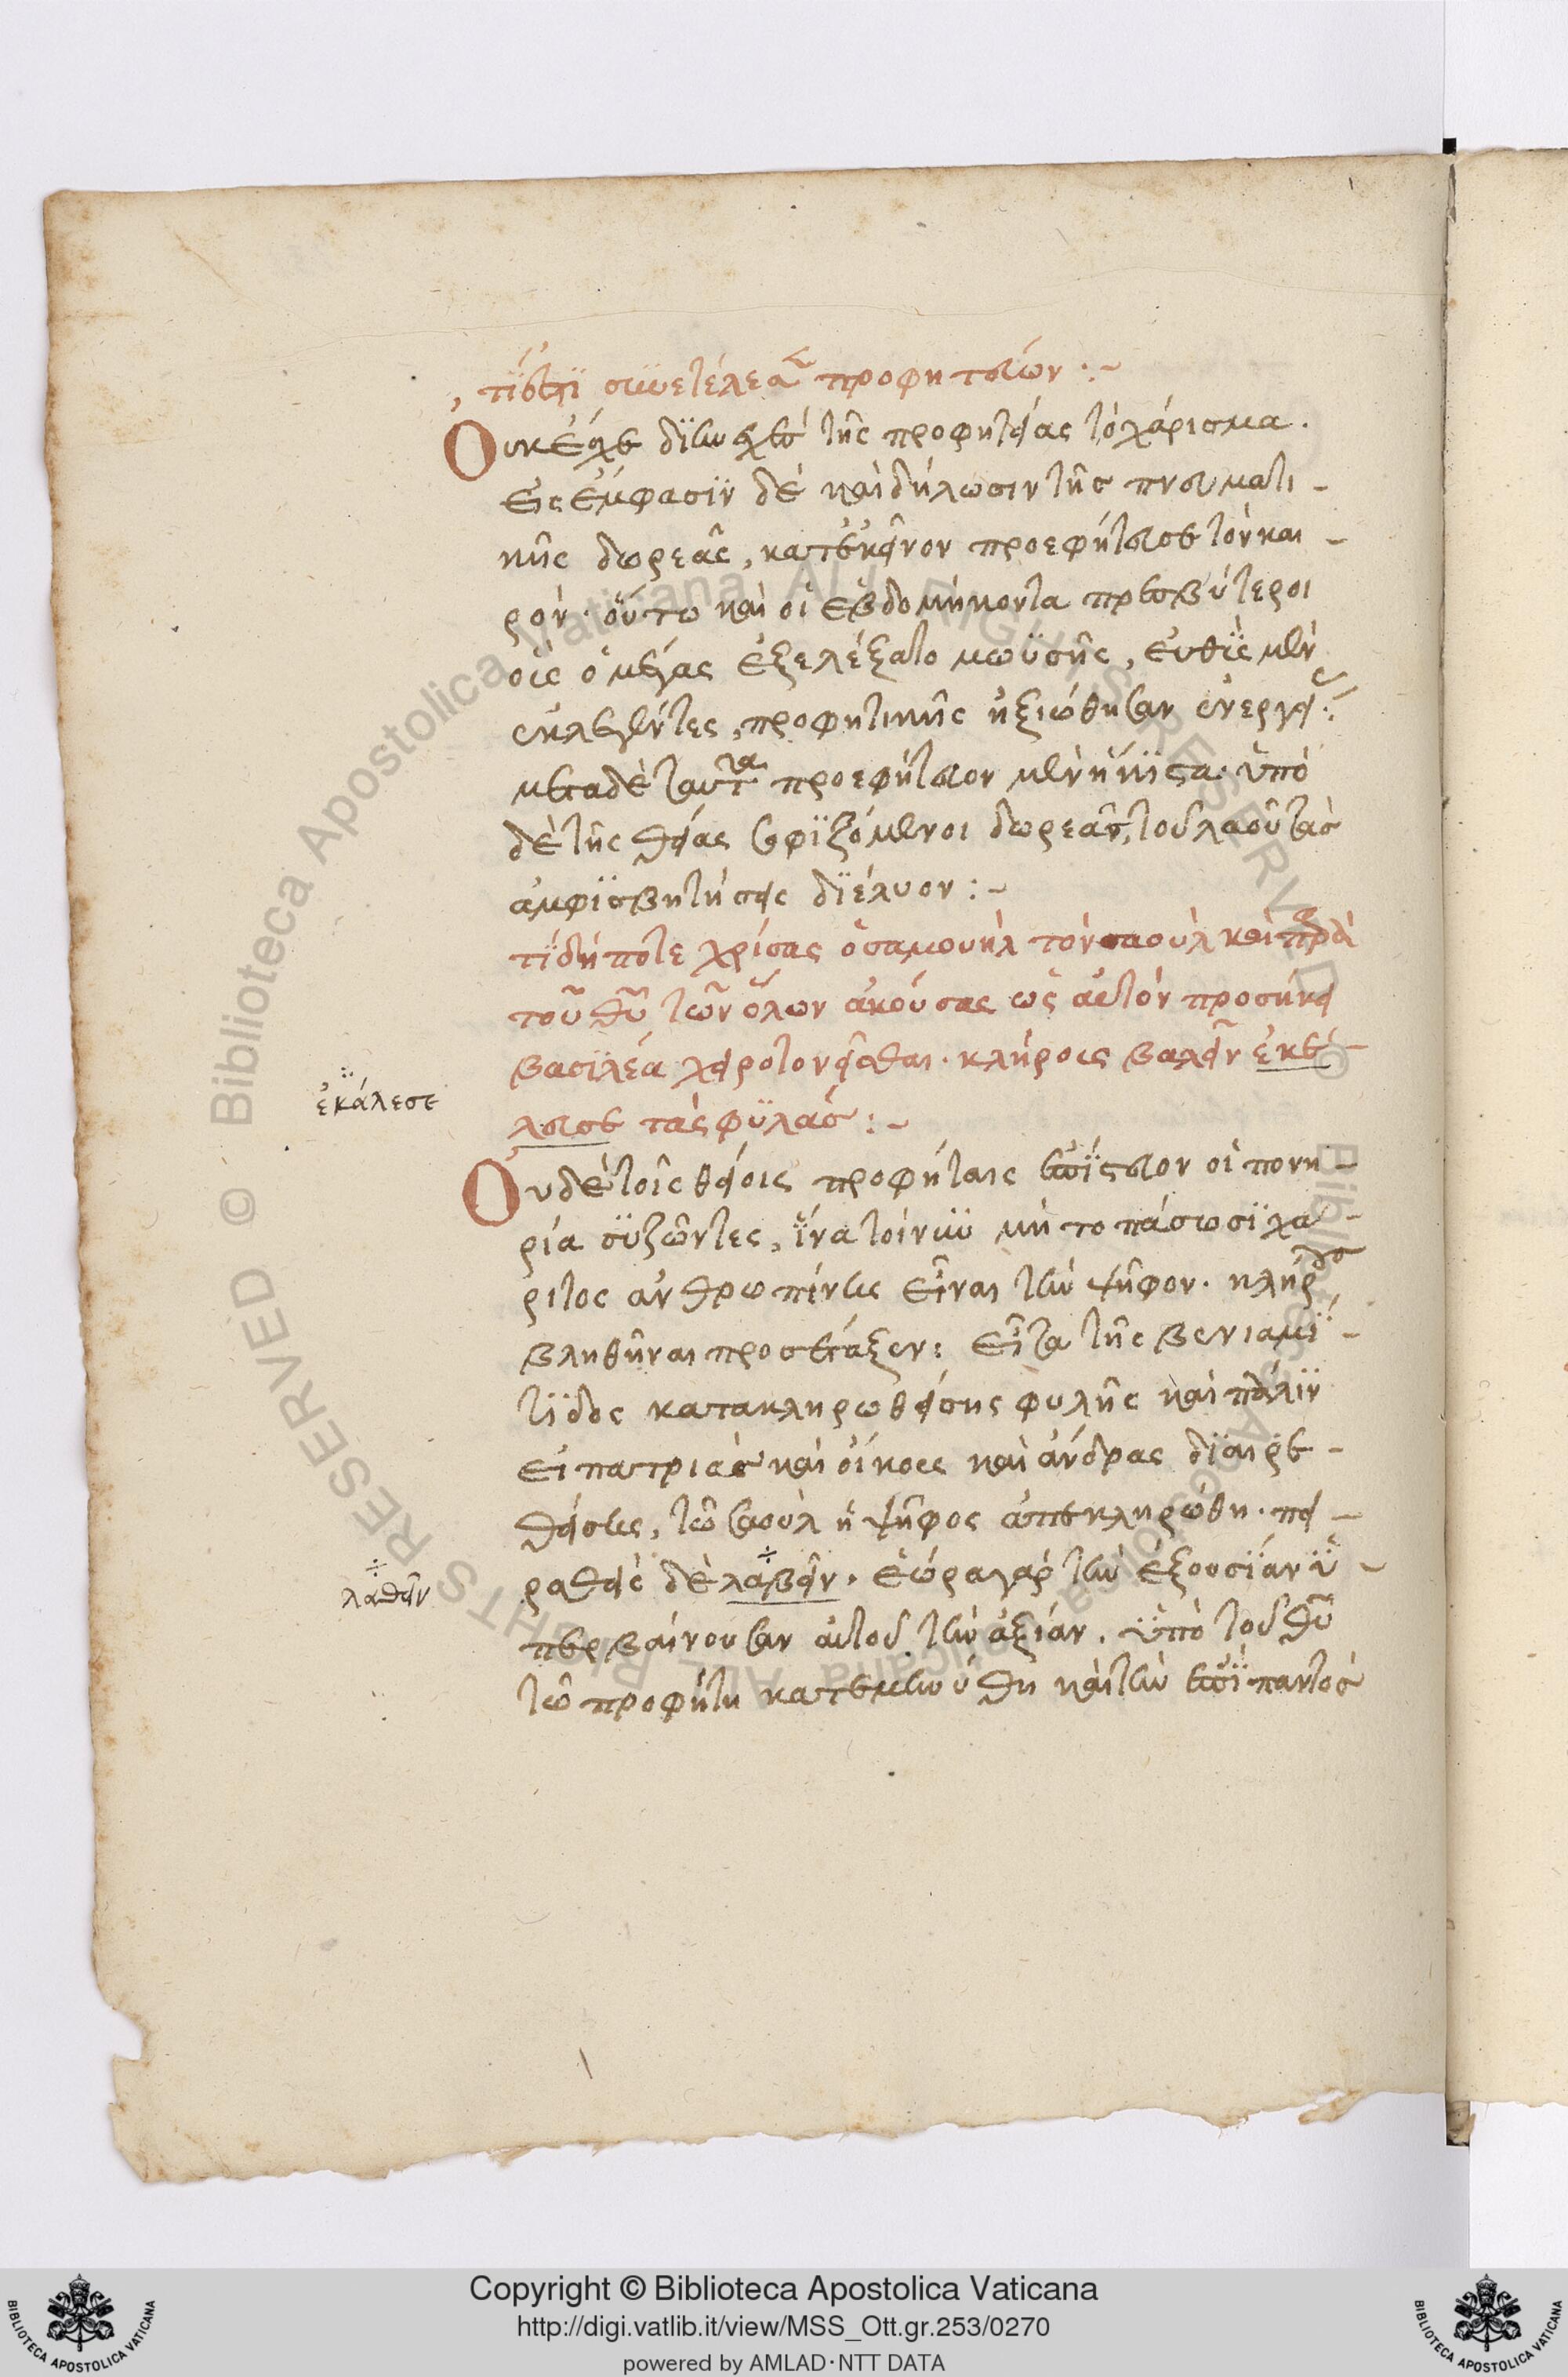 τί ἐστι συνετέλεσε προφητεύων :~
Οὐκ ἔσχε διηνεκὲς τῆς προφητείας τὸ χάρισμα.
εἰς ἔμφασιν δὲ καὶ δήλωσιν τῆς πνευματι-
κῆς δωρεᾶς, κατ' ἐκεῖνον προεφήτευσε τὸν και-
ρόν· οὕτω καὶ οἱ ἑβδομήκοντα πρεσβύτεροι
οὓς ὁ μέγας ἐξελέξατο μωϋσῆς, εὐθὺς μὲν
ἐκλεγέντες, προφητικῆς ἠξιώθησαν ἐνεργείας:
μετὰ δὲ ταῦτα προεφήτευον μὲν ἥκιστα· ὑπὸ
δὲ τῆς θείας σοφιζόμενοι δωρεᾶς, τοῦ λαοῦ τὰς
ἀμφισβητήσεις διέλυον :~
τί δήποτε χρίσας ὁ σαμουὴλ τὸν σαοὺλ καὶ παρὰ
τοῦ θυ τῶν ὅλων ἀκούσας ὡς αὐτὸν προσήκει
βασιλέα χειροτονεῖσθαι· κλήροις βαλεῖν ἐκέ-
λευσε τὰς φυλάς :~
ἐκάλεσε
Οὐδὲ τοῖς θείοις προφήταις ἐπίστευον οἱ πονη-
ρίᾳ συζῶντες, ἵνα τοίνυν μὴ τοπάσωσι χά-
ριτος ἀνθρωπίνης εἶναι τὴν ψῆφον· κλήρους
βληθῆναι προσέταξεν: εἶτα τῆς βενιαμί-
τιδος κατακληρωθείσης φυλῆς καὶ πάλιν
εἰ πατριὰς καὶ οἴκους καὶ ἄνδρας διαιρε-
θείσης, τῷ σαοὺλ ἡ ψῆφος ἀπεκληρώθη· πει-
ραθεὶς δὲ λαβεῖν, ἑώρα γὰρ τὴν ἐξουσίαν ὑ-
λαθεῖν
περβαίνουσαν αὐτοῦ τὴν ἀξίαν, ὑπὸ τοῦ θυ
τῷ προφήτῃ κατεμηνύθη καὶ τὴν ἐπὶ παντὸς
Copyright © Biblioteca Apostolica Vaticana
http://digi.vatlib.it/view/MSS_Ott.gr.253/0270
powered by AMLAD·NTT DATA
BIBLIOTECA APOSTOLICA VATICANA
BIBLIOTECA APOSTOLICA VATICANA
© Biblioteca Apostolica Vaticana ALL RIGHTS RESERVED